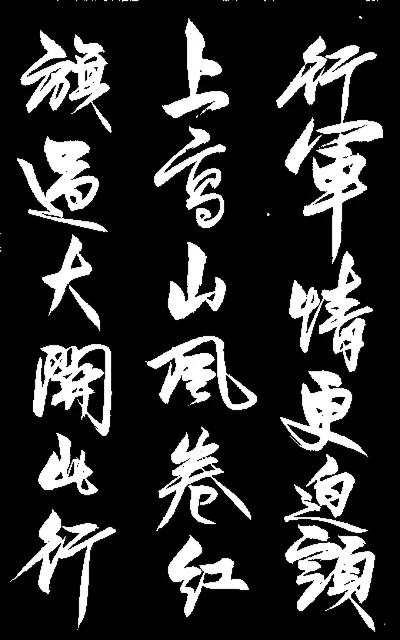 行軍情更迫頭
上高山風卷紅
旗過大關此行